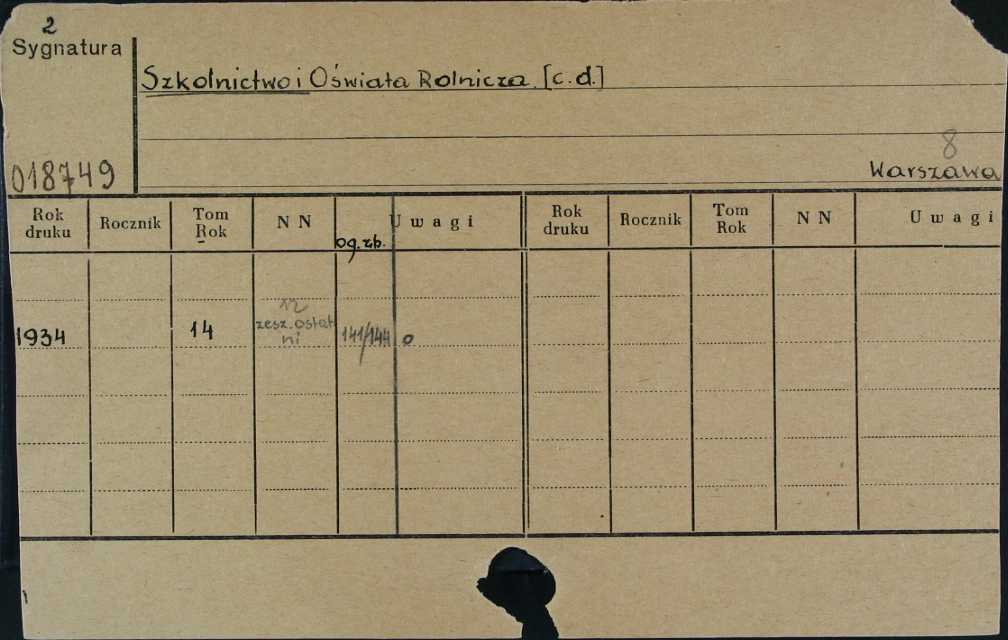 2
Sygnatura
Szkolnictwo i Oświata Rolnicza. [c.d.]
8
018749
Warszawa
Rok druku Rocznik Tom Rok N N og. zb. Uwagi Rok druku Rocznik Tom Rok N N Uwagi
12
1934 14 zesz. ostat 141/144 o
ni